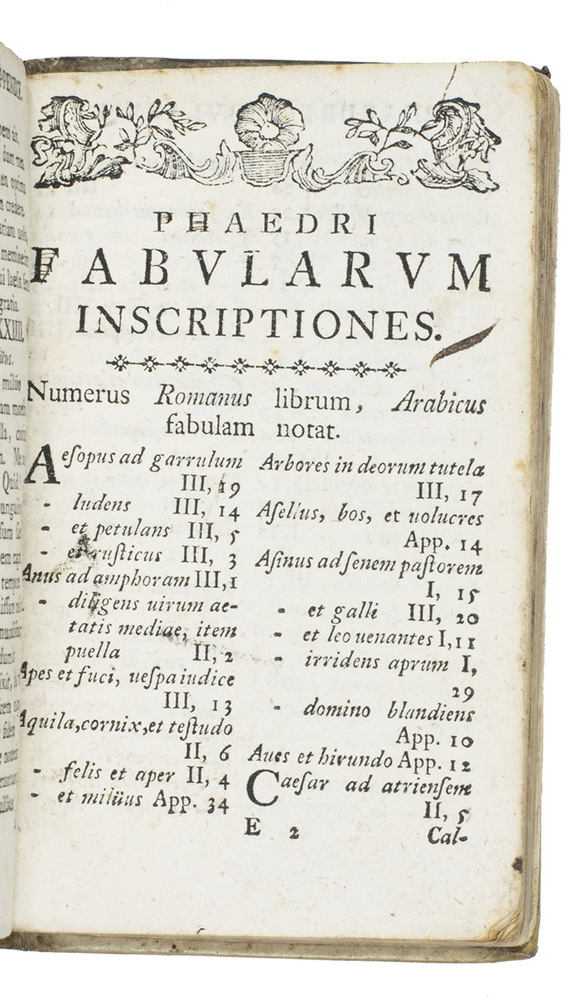 PHAEDRI
FABVLARVM
INSCRIPTIONES.
Numerus Romanus librum, Arabicus
fabulam notat.
Aesopus ad garrulum
III, 19
- ludens III, 14
- et petulans III, 5
- et rusticus III, 3
Anus ad amphoram III, 1
- diligens uirum ae-
tatis mediae, item
puella II, 2
Apes et fuci, uespa iudice
III, 13
Aquila, cornix, et testudo
II, 6
- felis et aper II, 4
- et miluus App. 34
Arbores in deorum tutela
III, 17
Asellus, bos, et uolucres
App. 14
Asinus ad senem pastorem
I, 15
- et galli III, 20
- et leo uenantes I, 11
- irridens aprum I,
29
- domino blandiens
App. 10
Aues et hirundo App. 12
Caesar ad atriensem
II, 5
E 2
Cal-